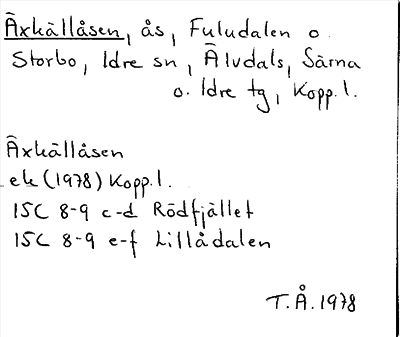 Äxkällåsen, ås, Fuludalen o.
Storbo, Idre sn, Älvdals, Särna
o. Idre tg, Kopp. l.
Äxkällåsen
ek (1978) Kopp. l.
15C 8-9 c-d Rödfjället
15C 8-9 e-f Lillådalen
T.Å. 1978